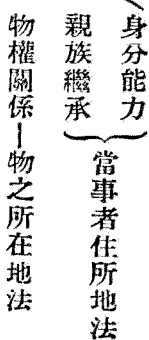 身分能力
親族繼承
當事者住所地法
物權關係─物之所在地法